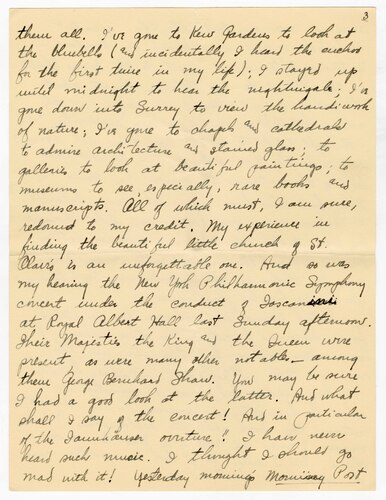 3
them all. I've gone to Kew Gardens to look at
the bluebells (and incidentally I heard the cuckoo
for the first time in my life); I stayed up
until midnight to hear the nightingale; I've
gone down into Surrey to view the handiwork
of nature; I've gone to chapels and cathedrals
to admire architecture and stained glass; to
galleries to look at beautiful paintings; to
museums to see, especially, rare books and
manuscripts. All of which must, I am sure,
redound to my credit. My experience in
finding the beautiful little church of St.
Olav's is an unforgettable one. And so was
my hearing the New York Philharmonic Symphony
concert under the conduct of Toscanini
at Royal Albert Hall last Sunday afternoon.
Their Majesties the King and the Queen were
present as were many other notables — among
them George Bernhard Shaw. You may be sure
I had a good look at the latter. And what
shall I say of the concert! And in particular
of the Tannhauser overture!! I have never
heard such music. I thought I should go
mad with it! Yesterday morning's Morning Post